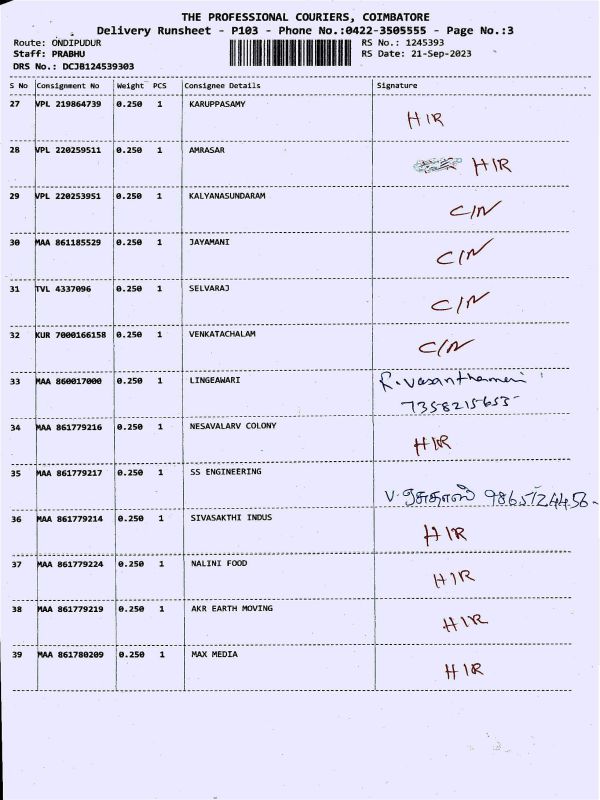 THE PROFESSIONAL COURIERS, COIMBATORE
Delivery Runsheet - P103 - Phone No.:0422-3505555 - Page No.:3
Route: ONDIPUDUR RS No.: 1245393
Staff: PRABHU RS Date: 21-Sep-2023
DRS No.: DCJB124539303
S No Consignment No Weight PCS Consignee Details Signature
27 VPL 219864739 0.250 1 KARUPPASAMY H/R
28 VPL 220259511 0.250 1 AMRASAR H/R
29 VPL 220253951 0.250 1 KALYANASUNDARAM C/N
30 MAA 861185529 0.250 1 JAYAMANI C/N
31 TVL 4337096 0.250 1 SELVARAJ C/N
32 KUR 7000166158 0.250 1 VENKATACHALAM C/N
33 MAA 860017000 0.250 1 LINGEAWARI R. Vasanthamani
7358215653
34 MAA 861779216 0.250 1 NESAVALARV COLONY H/R
35 MAA 861779217 0.250 1 SS ENGINEERING
V. 9865724456
36 MAA 861779214 0.250 1 SIVASAKTHI INDUS H/R
37 MAA 861779224 0.250 1 NALINI FOOD H/R
38 MAA 861779219 0.250 1 AKR EARTH MOVING H/R
39 MAA 861780209 0.250 1 MAX MEDIA H/R